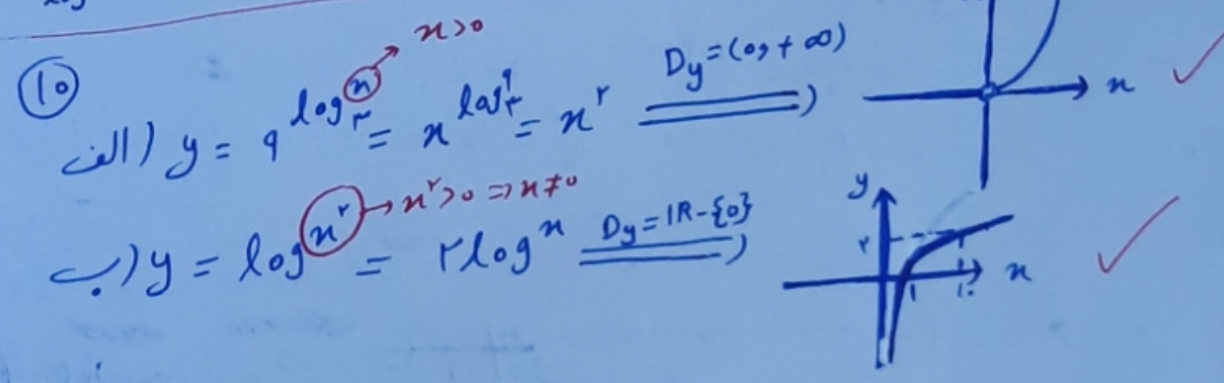 ⑩
x>0
الف) y = ۹^log_۳^x = x^log_۳^۹ = x^۲ D_y=(0,+∞)
x
x^۲>0 ⇒ x≠0
ب) y = log^x^۲ = ۲log^x D_y=IR-{0}
y
۲
x
1 10